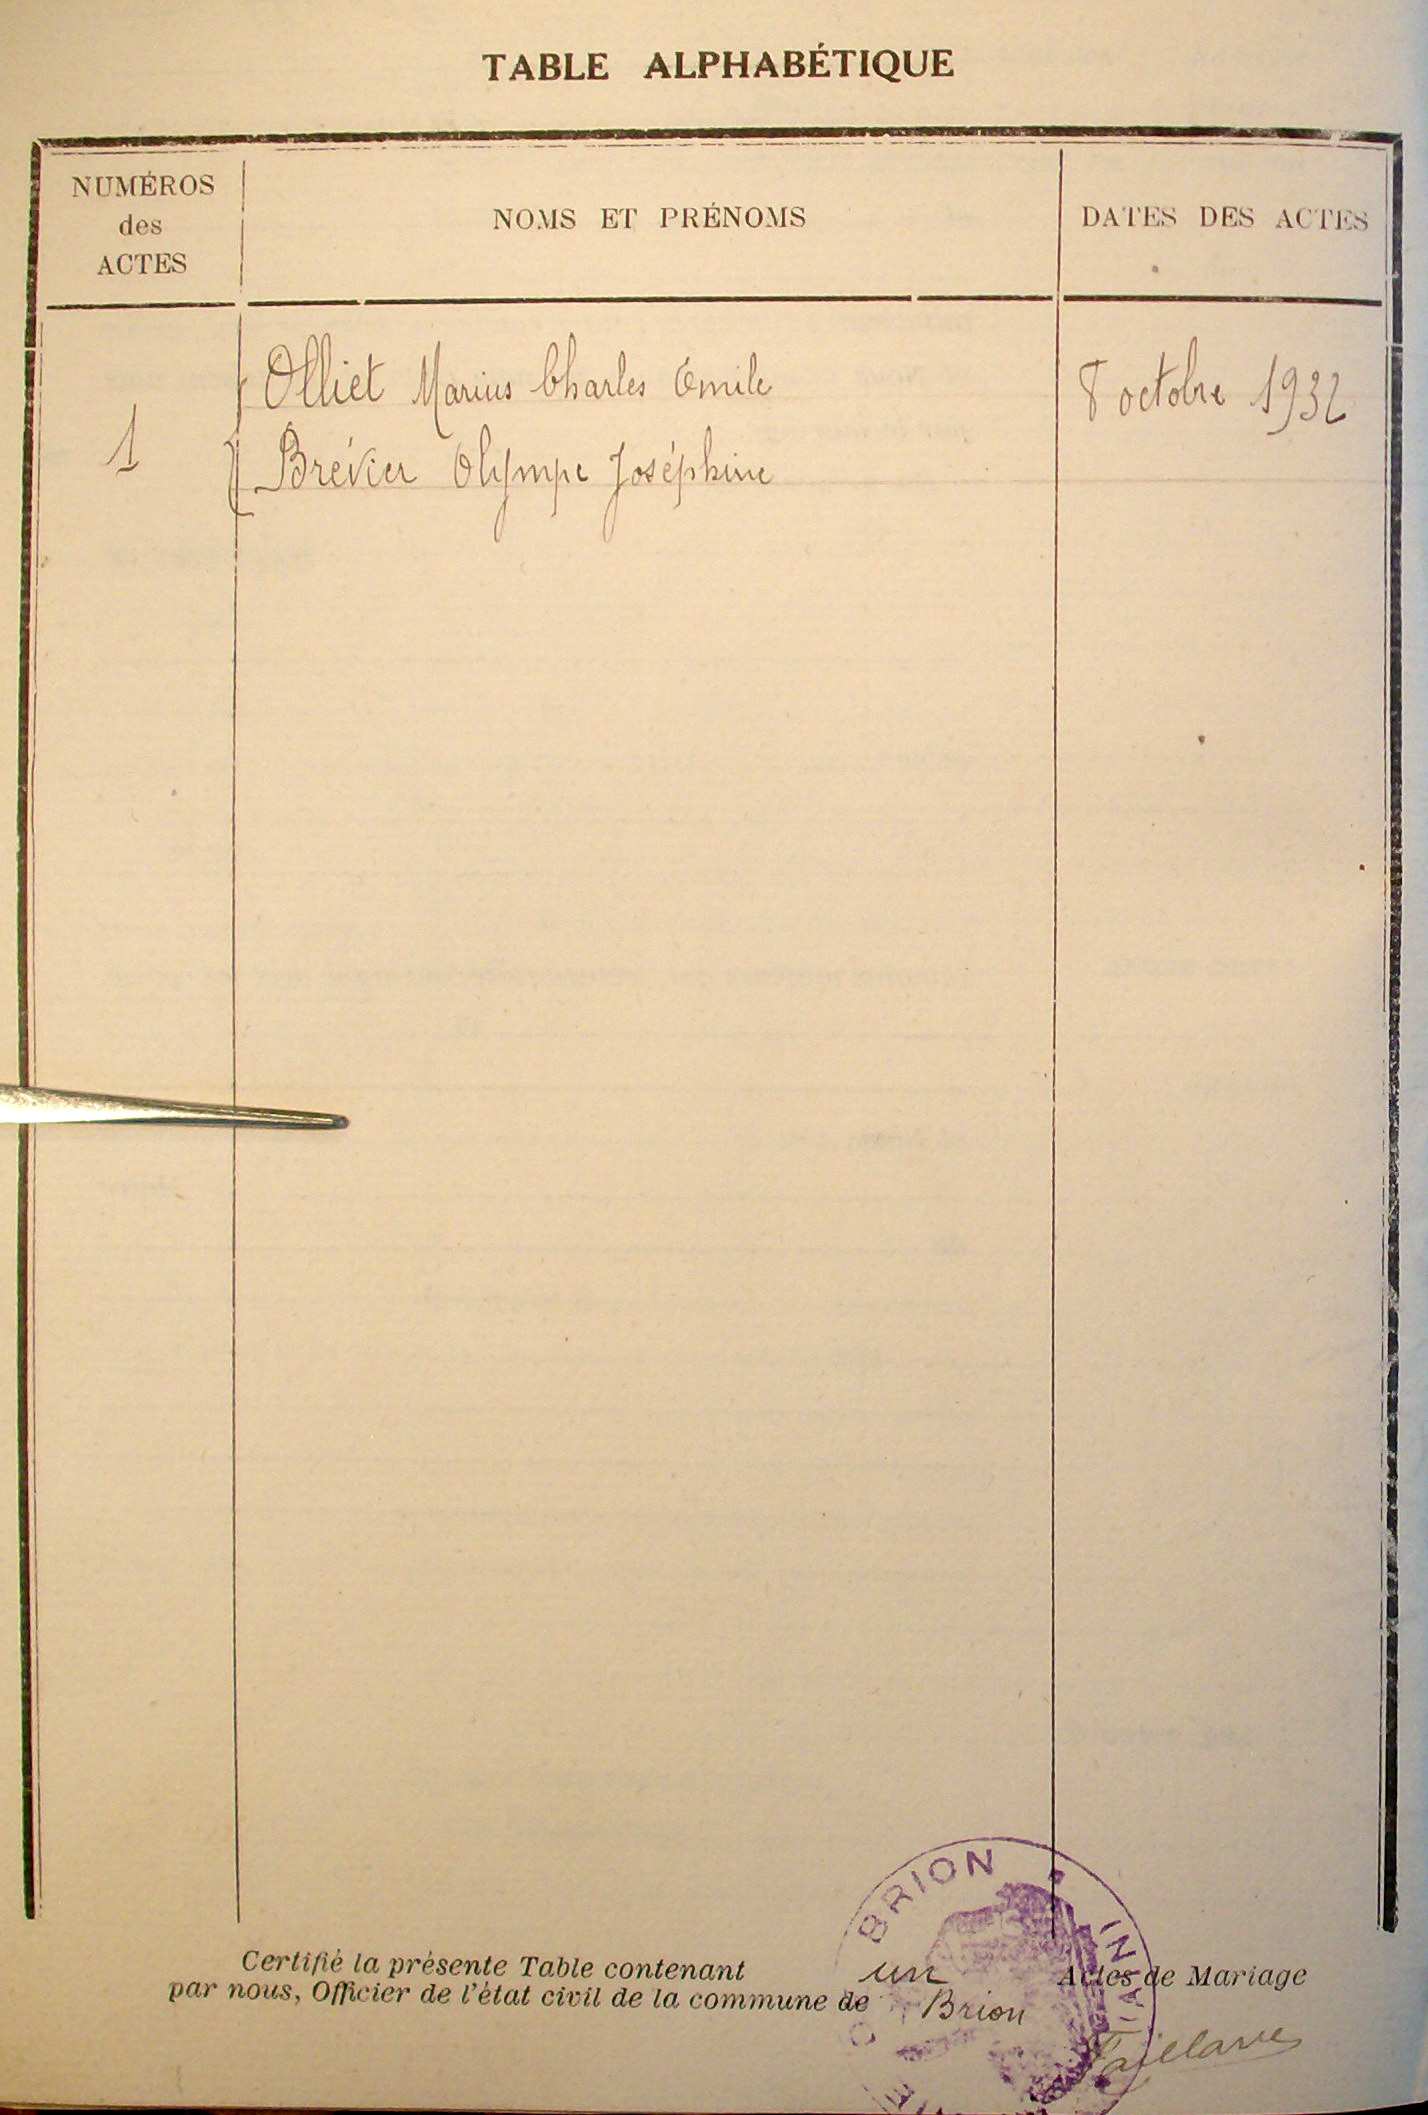 TABLE ALPHABÉTIQUE
NUMÉROS
des
ACTES
NOMS ET PRÉNOMS
DATES DES ACTES
1
Olliet Marius Charles Emile
8 octobre 1932
Brévier Olympe Joséphine
Certifié la présente Table contenant un Actes de Mariage
par nous, Officier de l'état civil de la commune de Brion
BRION